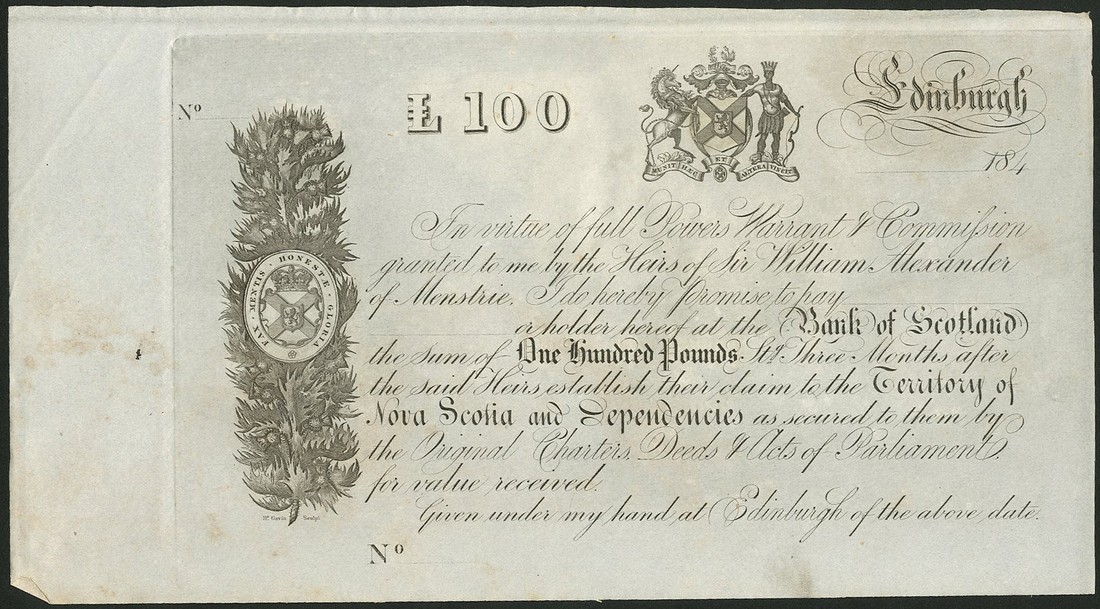 Nº
£ 100
MUNIT HÆC ET ALTERA VINCIT
Edinburgh
184
In virtue of full Powers Warrant & Commission
granted to me by the Heirs of Sir William Alexander
of Menstrie. I do hereby promise to pay
or holder hereof at the Bank of Scotland
the Sum of One Hundred Pounds Stg. Three Months after
the said Heirs establish their claim to the Territory of
Nova Scotia and Dependencies as secured to them by
the Original Charters, Deeds & Acts of Parliament,
for value received.
Given under my hand at Edinburgh of the above date.
PAX · MENTIS · HONESTÆ · GLORIA
Hr. Gavin Sculpt.
Nº